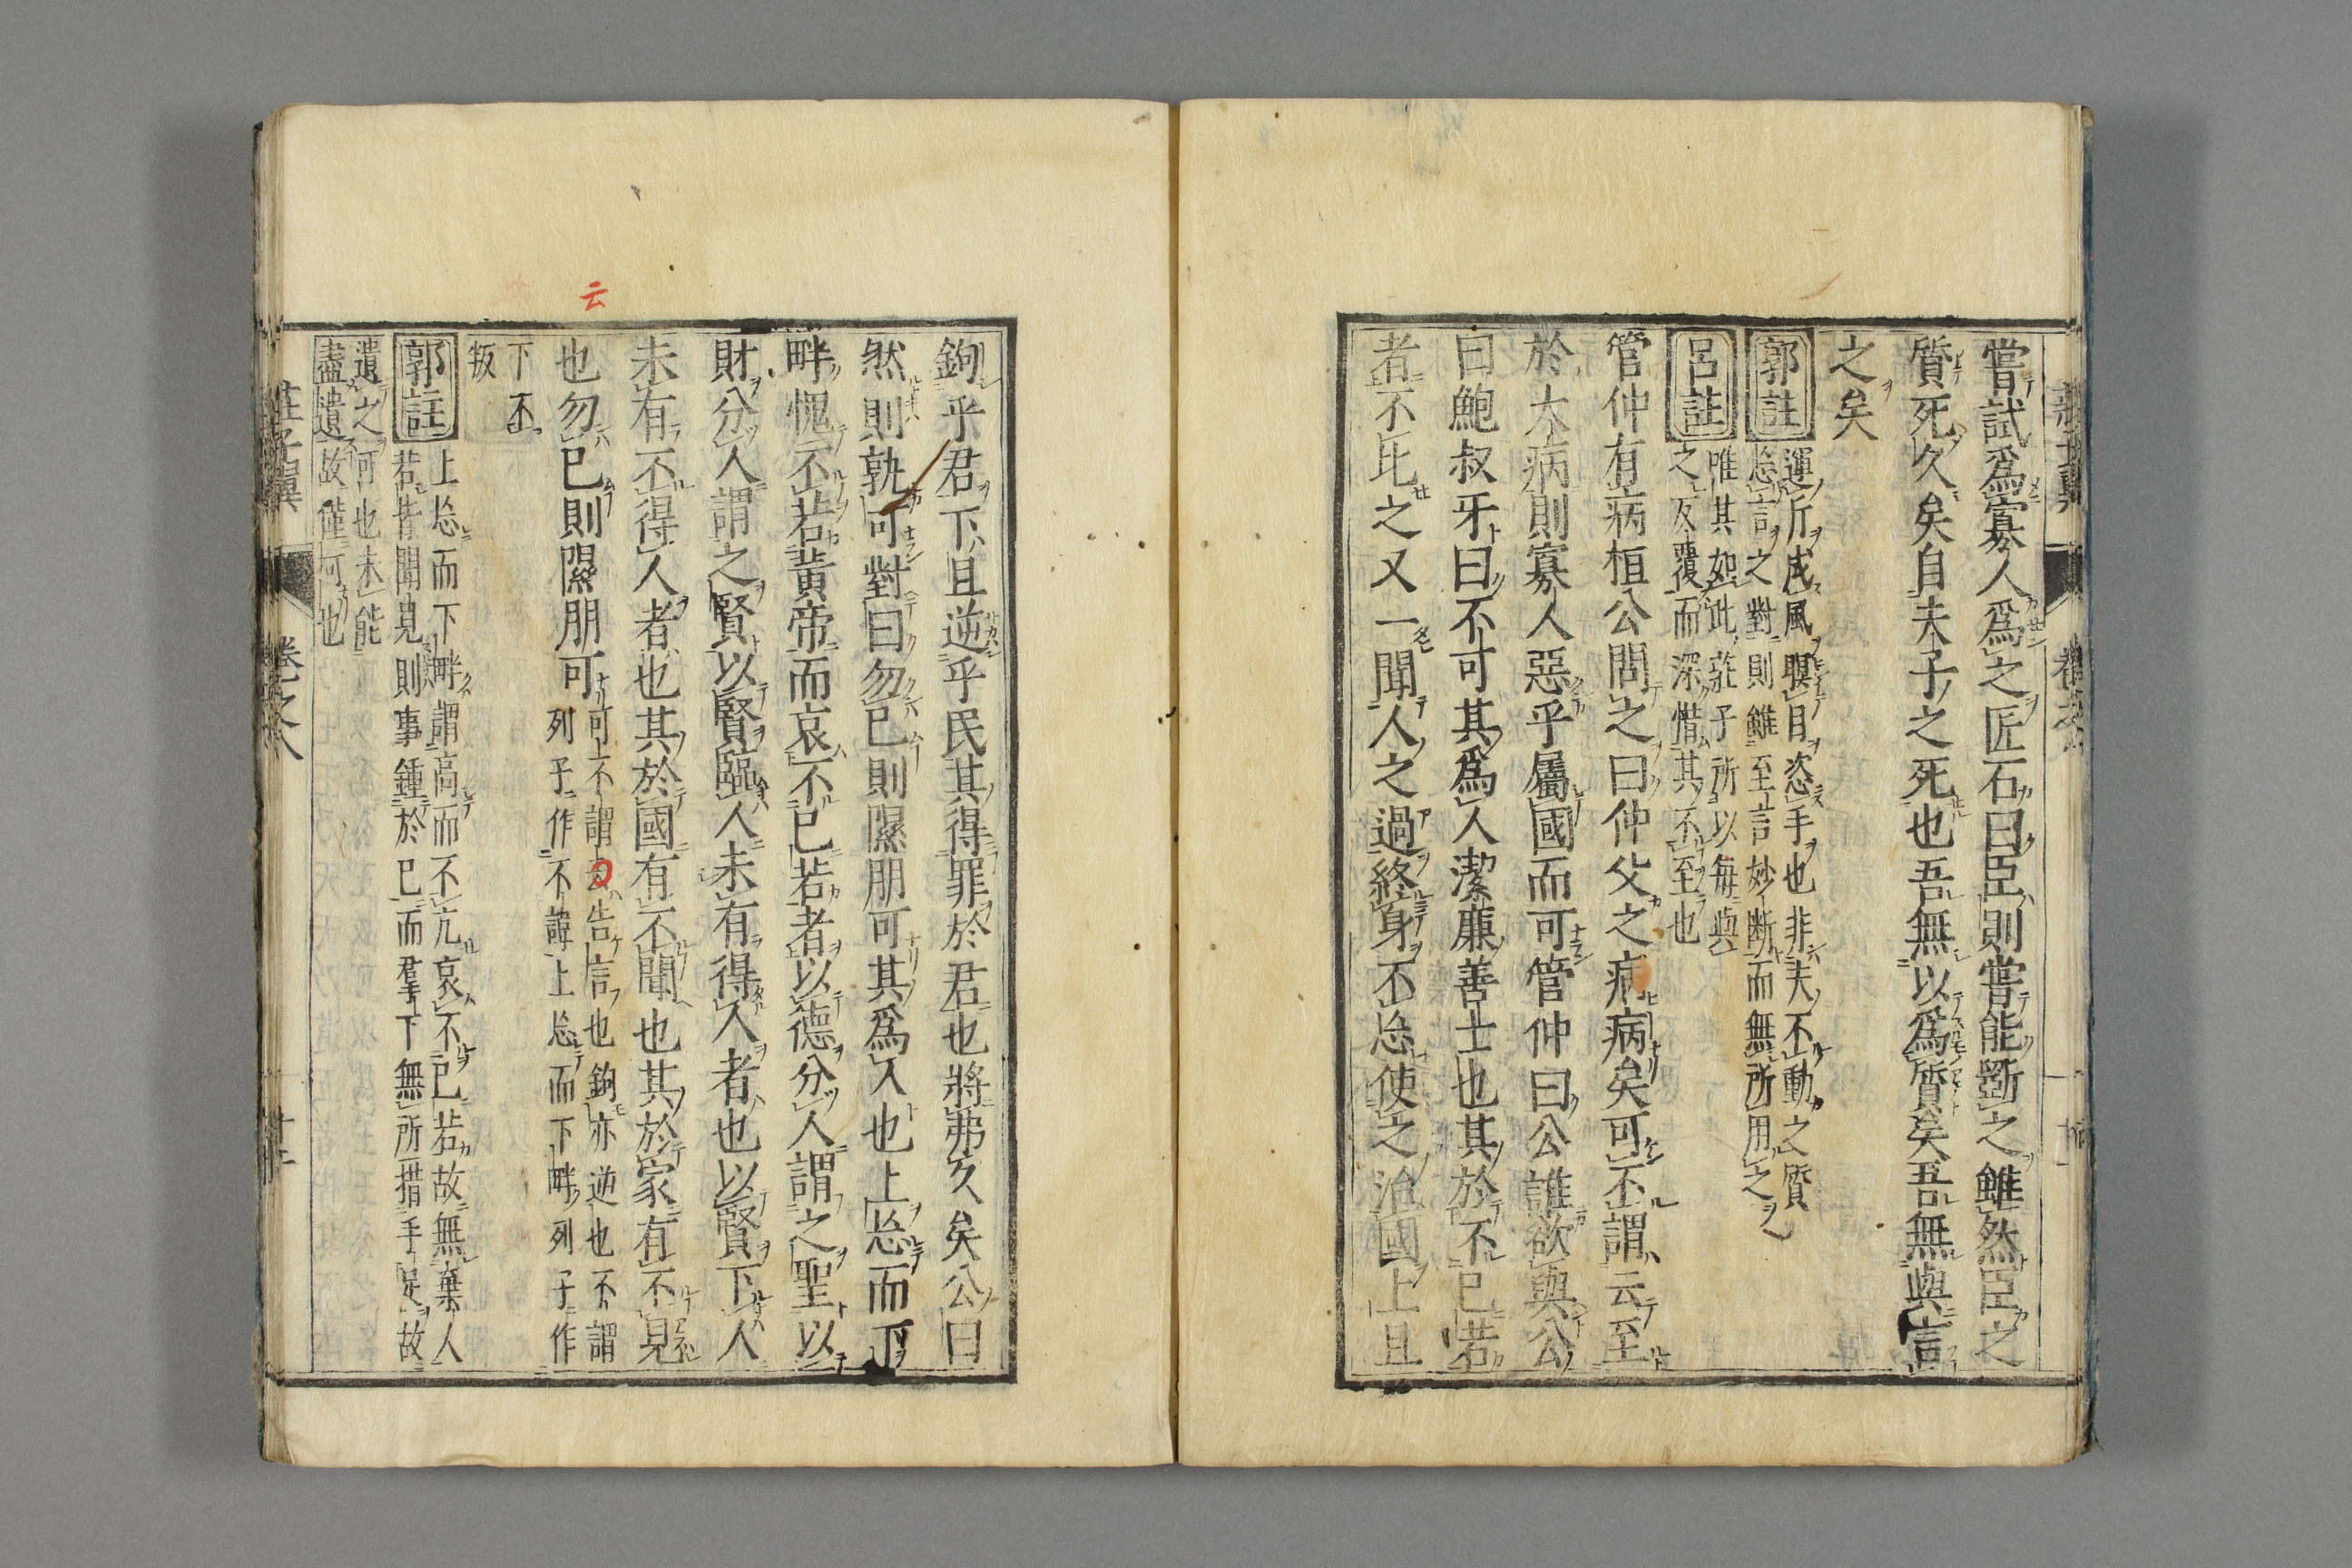 嘗試爲寡人爲之匠石曰臣則嘗能斵之雖然臣之
質死久矣自夫子之死也吾無以爲質矣吾無與言
之矣
郭註 運斤成風瞑目恣手也非夫不動之質
忘言之對則雖至言妙斷而無所用之
呂註 唯其如此莊子所以每與
之反覆而深惜其不至也
管仲有病桓公問之曰仲父之病病矣可不謂云至
於大病則寡人惡乎屬國而可管仲曰公誰欲與公
曰鮑叔牙曰不可其爲人潔廉善士也其於不已若
者不比之又一聞人之過終身不忘使之治國上且
鉤乎君下且逆乎民其得罪於君也將弗久矣公曰
然則孰可對曰勿已則隰朋可其爲人也上忘而下
畔愧不若黃帝而哀不已若者以德分人謂之聖以
財分人謂之賢以賢臨人未有得人者也以賢下人
未有不得人者也其於國有不聞也其於家有不見
也勿已則隰朋可 可不謂云告言也鉤亦逆也不謂
列子作不諱上忘而下畔列子作
下不
叛
郭註 上忘而下畔謂高而不亢哀不已若故無棄人
若皆聞見則事鍾於已而羣下無所措手足故
遺之可也未能
盡遺故僅可也
莊子翼 卷之八
云